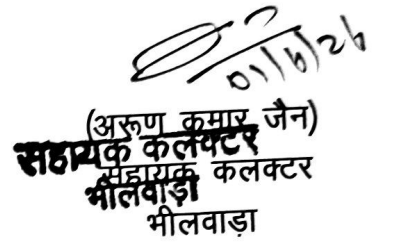 01/6/26
(अरूण कुमार जैन)
सहायक कलक्टर
सहायक कलक्टर
भीलवाड़ा
भीलवाड़ा